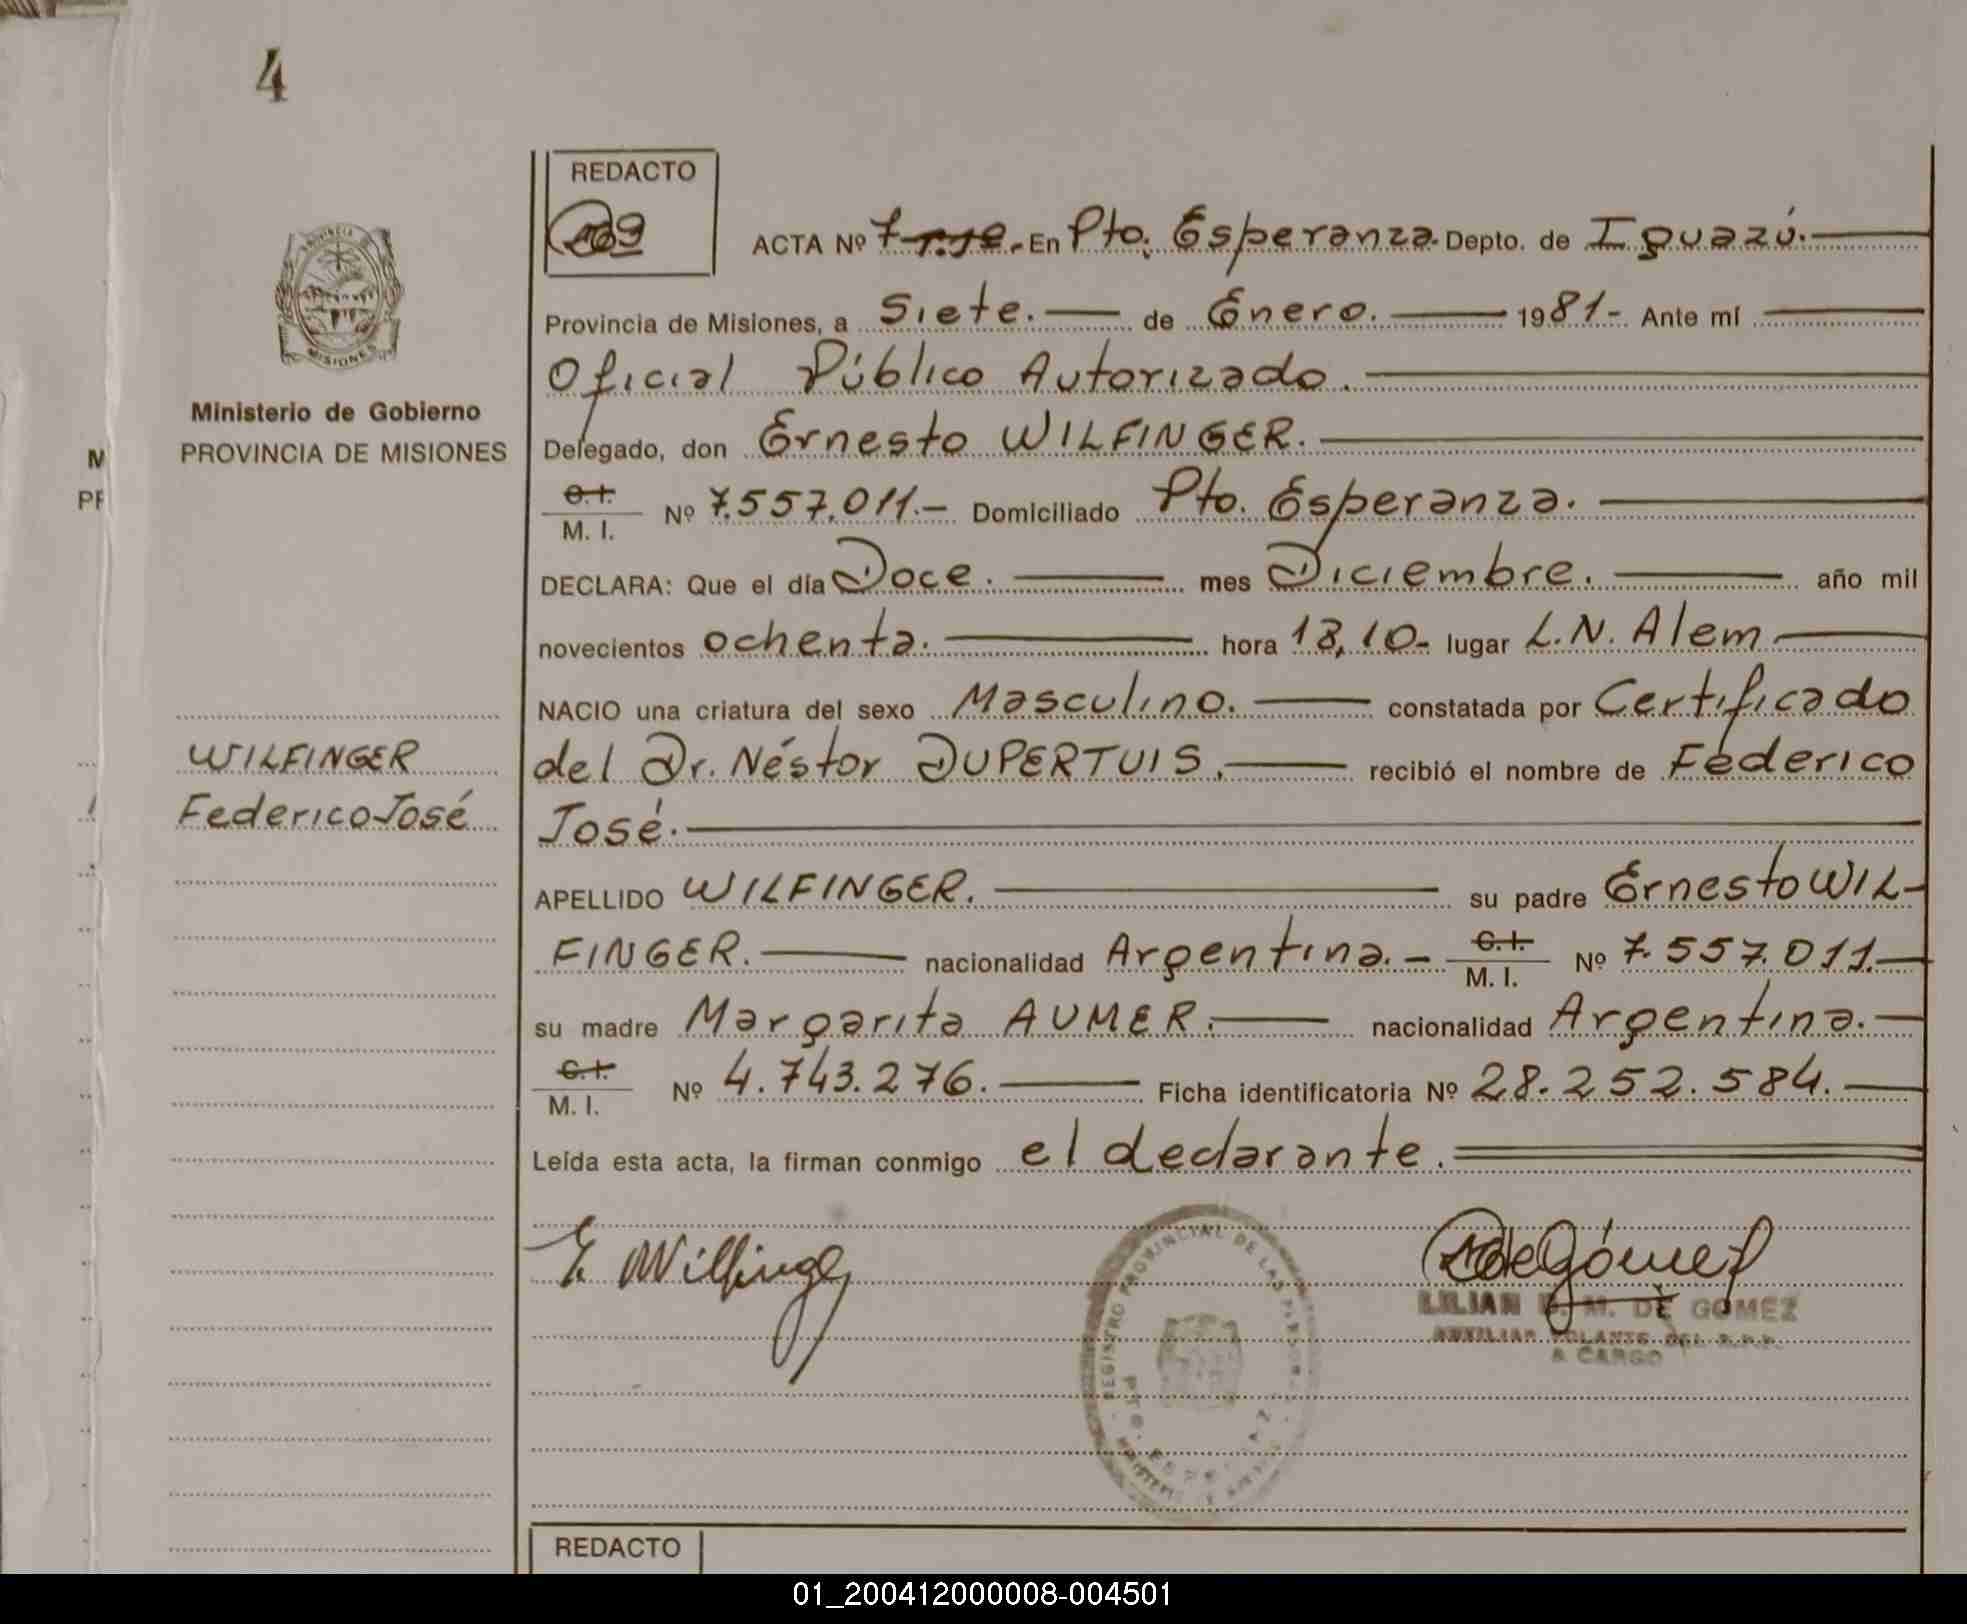 4
REDACTO
ACTA Nº 7 En Pto. Esperanza. Depto. de Iguazú.
Provincia de Misiones, a Siete. de Enero. 1981- Ante mí
Oficial Público Autorizado.
Ministerio de Gobierno
PROVINCIA DE MISIONES
Delegado, don Ernesto WILFINGER.
C.I.
M. I. Nº 7.557.011.- Domiciliado Pto. Esperanza.
DECLARA: Que el día Doce. mes Diciembre. año mil
novecientos ochenta. hora 13,10- lugar L.N. Alem
NACIO una criatura del sexo Masculino. constatada por Certificado
WILFINGER
Federico José
del Dr. Néstor DUPERTUIS. recibió el nombre de Federico
José.
APELLIDO WILFINGER. su padre Ernesto WIL-
FINGER. nacionalidad Argentina.- C.I. M. I. Nº 7.557.011.
su madre Margarita AUMER. nacionalidad Argentina.
C.I.
M. I. Nº 4.743.276. Ficha identificatoria Nº 28.252.584.
Leída esta acta, la firman conmigo el declarante.
E. Wilfinger
de Gómez
LILIAN M. DE GOMEZ
AUXILIAR VOLANTE DEL R.P.P.
A CARGO
REGISTRO PROVINCIAL DE LAS
MISIONES
REDACTO
01_200412000008-004501